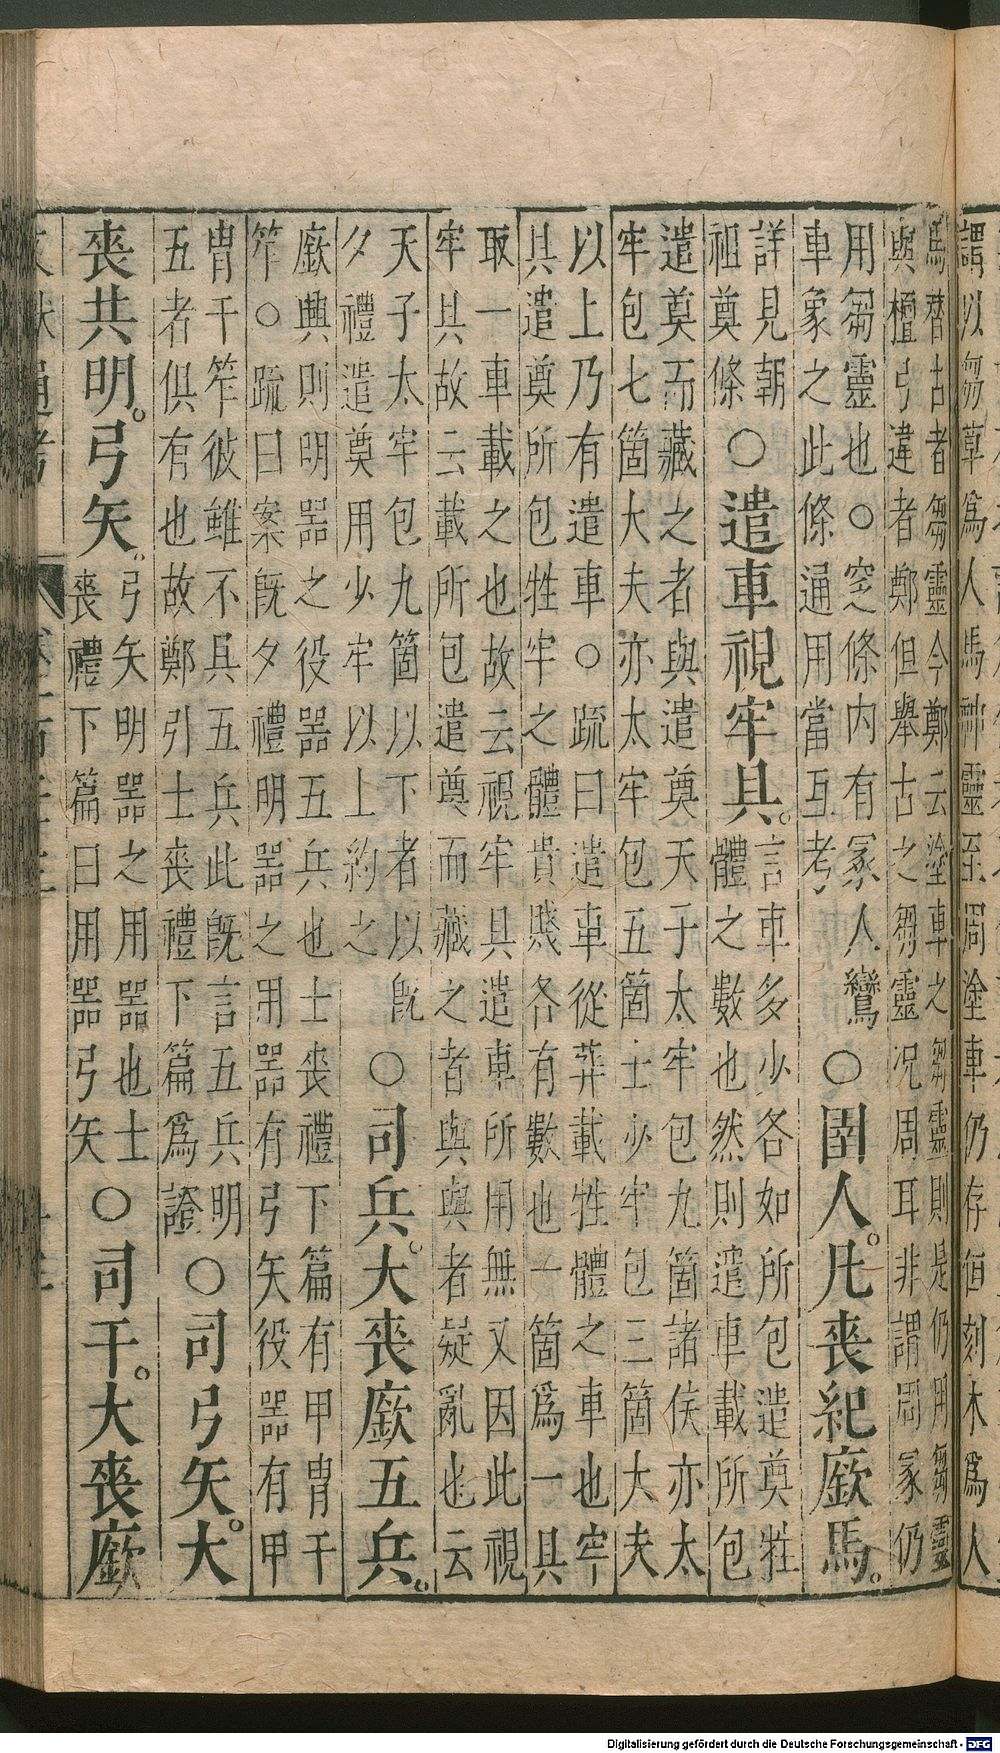 謂以芻草爲人馬神靈至周塗車仍存但刻木爲人
馬朁古者芻靈今鄭云塗車之芻靈則是仍用芻靈
與檀弓違者鄭但舉古之芻靈况周耳非謂周家仍
用芻靈也○窆條内有冢人鸞
車象之此條通用當互考
○圉人。凡喪紀廞馬。
詳見朝
祖奠條
○遣車視牢具。
言車多少各如所包遣奠牲
體之數也然則遣車載所包
遣奠而藏之者與遣奠天子太牢包九箇諸侯亦太
牢包七箇大夫亦太牢包五箇士少牢包三箇大夫
以上乃有遣車○疏曰遣車從葬載牲體之車也牢
具遣奠所包牲牢之體貴賤各有數也一箇爲一具
取一車載之也故云視牢具遣車所用無又因此視
牢具故云載所包遣奠而藏之者與與者疑亂也云
天子太牢包九箇以下者以旣
夕禮遣奠用少牢以上約之
○司兵。大喪廞五兵。
廞興則明器之役器五兵也士喪禮下篇有甲冑干
笮○疏曰案旣夕禮明器之用器有弓矢役器有甲
冑干笮彼雖不具五兵此旣言五兵明
五者俱有也故鄭引士喪禮下篇爲證
○司弓矢。大
喪共明。弓矢。
弓矢明器之用器也士
喪禮下篇曰用器弓矢
○司干。大喪廞
文獻通考
Digitalisierung gefördert durch die Deutsche Forschungsgemeinschaft - DFG